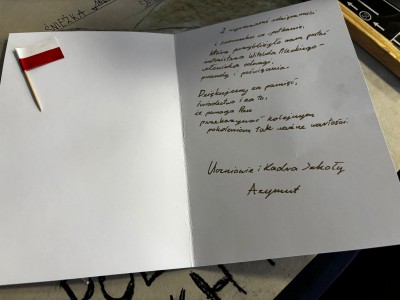 ŚNIEŻKA
Z wyrazami wdzięczności
i szacunku za spotkanie,
które przybliżyło nam postać
rotmistrza Witolda Pileckiego -
człowieka odwagi,
prawdy i poświęcenia.
Dziękujemy za pamięć,
świadectwo i za to,
że pomaga Pan
przekazywać kolejnym
pokoleniom tak ważne wartości.
Uczniowie i Kadra Szkoły
Azymut